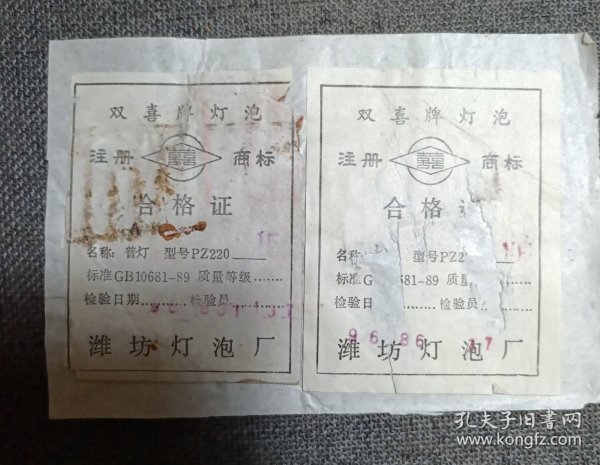 双喜牌灯泡
注册 囍 商标
合格证
名称: 普灯 型号PZ220____
15
标准GB10681-89 质量等级.......
检验日期.........检验员.........
潍坊灯泡厂
双喜牌灯泡
注册 囍 商标
合格
名称 型号PZ2
标准G 681-89 质量
检验日 检验员
96 86 17
潍坊灯泡厂
孔夫子旧书网
www.kongfz.com